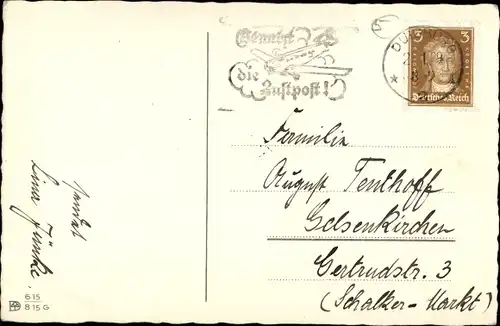 Benutzt
die
Luftpost!
3 3
Deutsches Reich
Familie
August Tenthoff
Gelsenkirchen
Gertrudstr. 3
(Schalker-Markt)
Lina
615
815 G